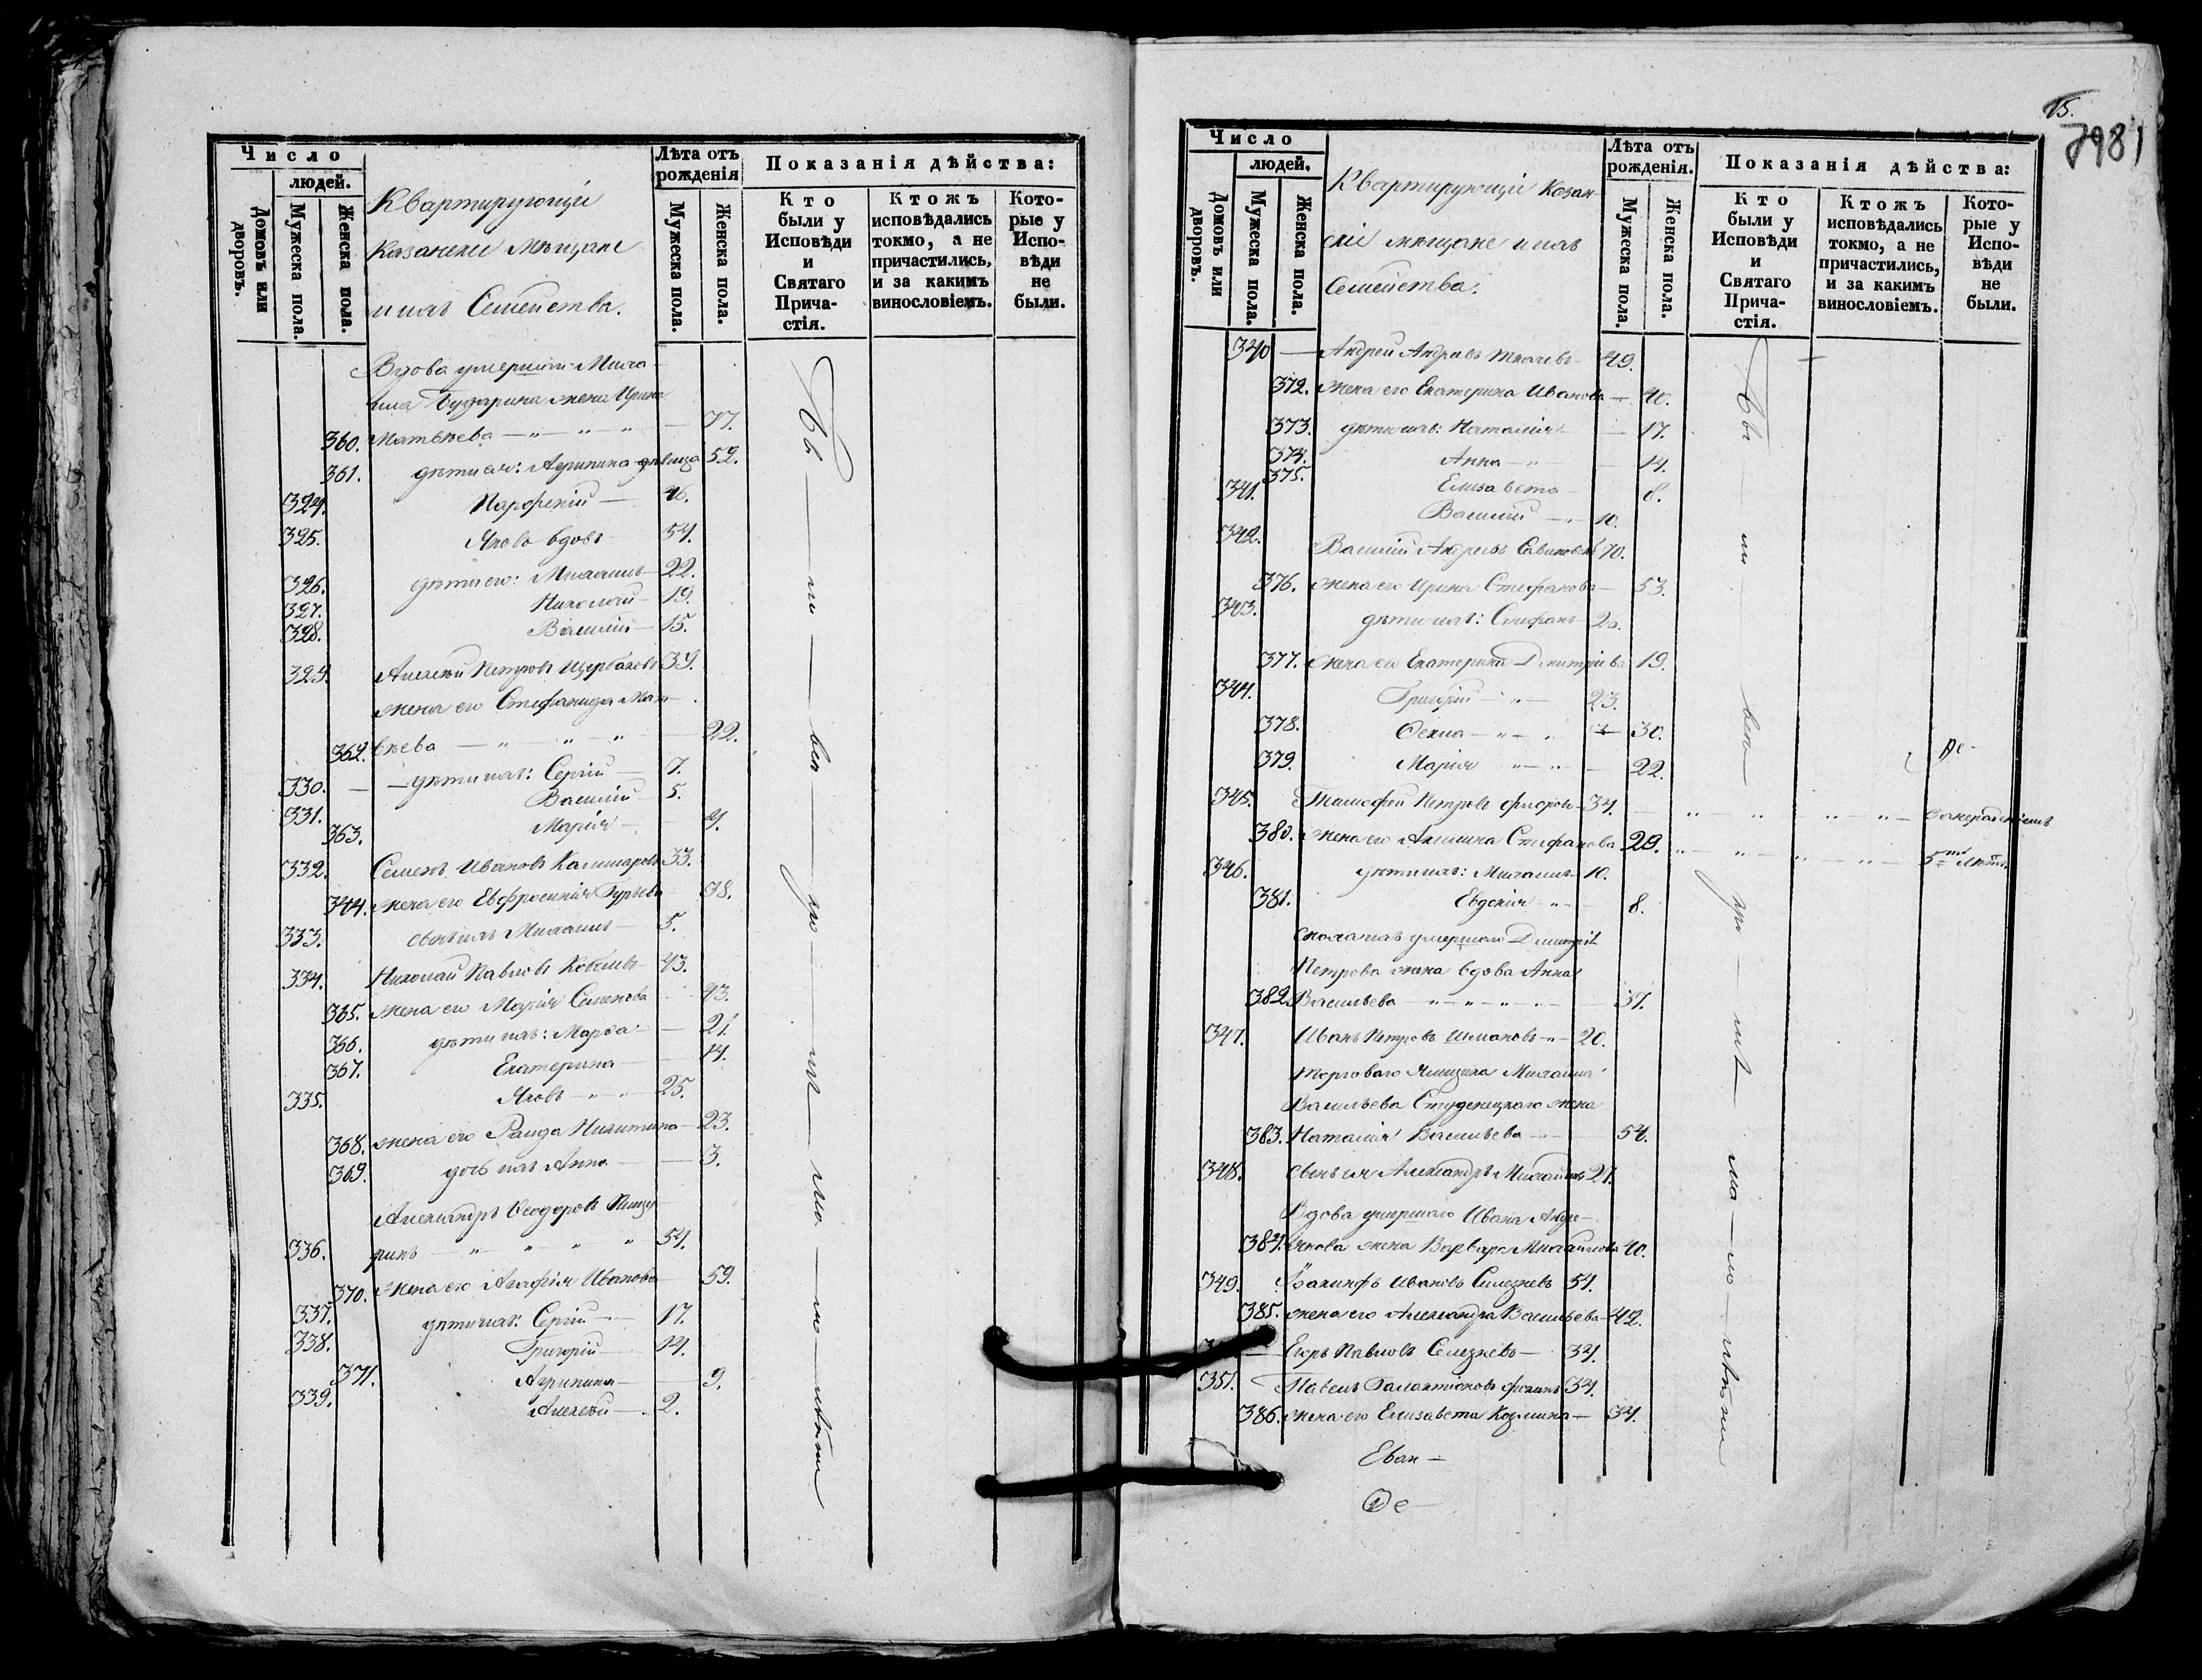 Число
людей.
Домовъ или дворовъ.
Мужеска пола.
Женска пола.
Квартирующіе
Казанскіе Мѣщане
и ихъ Семейства.
Лѣта отъ рожденія
Мужеска пола.
Женска пола.
Показанія дѣйства:
Кто были у Исповѣди и Святаго Прича-стія.
Ктожъ исповѣдались токмо, а не причастились, и за какимъ винословіемъ.
Кото-рые у Испо-вѣди не были.
Вдова умершаго Миха-
ила жена Ирина
360. Матвѣева 77.
361. дѣти ея: Агрипина дѣвица 52.
324. Парфеній 46.
325. Яковъ вдовъ 54.
326. дѣти его: Михаилъ 22.
327. Николай 19.
328. Василій 15.
329. Алексѣй Петровъ Щербаковъ 39.
жена его Стефанида Мат-
362. вѣева 22.
330. дѣти ихъ: Сергій 7.
331. Василій 5.
363. Марія
332. Семенъ Ивановъ 33.
344. жена его Евфросинія Гурьева 38.
333. сынъ ихъ Михаилъ 5.
334. Николай Павловъ 43.
365. жена его Марія Семенова 43.
366. дѣти ихъ: Марѳа 21.
367. Екатерина 14.
335. Яковъ 25.
368. жена его Раида Никитина 23.
369. дочь ихъ Анна 3.
Александръ Ѳеодоровъ
336. ринъ 54.
370. жена его Агафія Иванова 59.
337. дѣти ихъ: Сергій 17.
338. Григорій 14.
371. Агрипина 9.
339. Алексѣй 2.
15.
7981
Число
людей.
Домовъ или дворовъ.
Мужеска пола.
Женска пола.
Квартирующіе Казан-
скіе мѣщане и ихъ
Семейства.
Лѣта отъ рожденія.
Мужеска пола.
Женска пола.
Показанія дѣйства:
Кто были у Исповѣди и Святаго Прича-стія.
Ктожъ исповѣдались токмо, а не причастились, и за какимъ винословіемъ.
Кото-рые у Испо-вѣди не были.
340 Андрей Ткачевъ 49.
372. жена его Екатерина Иванова 40.
373. дѣти ихъ: Наталія 17.
374. Анна 14.
375. Елизавета 8.
341. Василій 10.
342. Василій Андреевъ 70.
376. жена его Ирина Стефанова 53.
343. дѣти ихъ: Стефанъ 25.
377. жена его Екатерина Дмитріева 19.
344. Григорій 23.
378. Ѳекла 30.
379. Марія 22.
345. Тимофей Петровъ 34.
380. жена его Акилина Стефанова 29.
346. дѣти ихъ: Михаилъ 10.
381. Евдокія 8.
сноха ихъ умершаго Димитрія
Петрова жена вдова Анна
382. Васильева 37.
347. Иванъ Петровъ 20.
Торговаго Михаила
Васильева Студенецкаго жена
383. Наталія Васильева 54.
348. сынъ ея Александръ Михайловъ 21.
Вдова умершаго Ивана Андре-
384. янова жена Варвара Михайлова 40.
349. Іоакинфъ Ивановъ Селезневъ 54.
385. жена его Александра Васильева 42.
Егоръ Павловъ Селезневъ 34.
351. Павелъ Галактіоновъ 34.
386. жена его Елизавета Козмина 34.